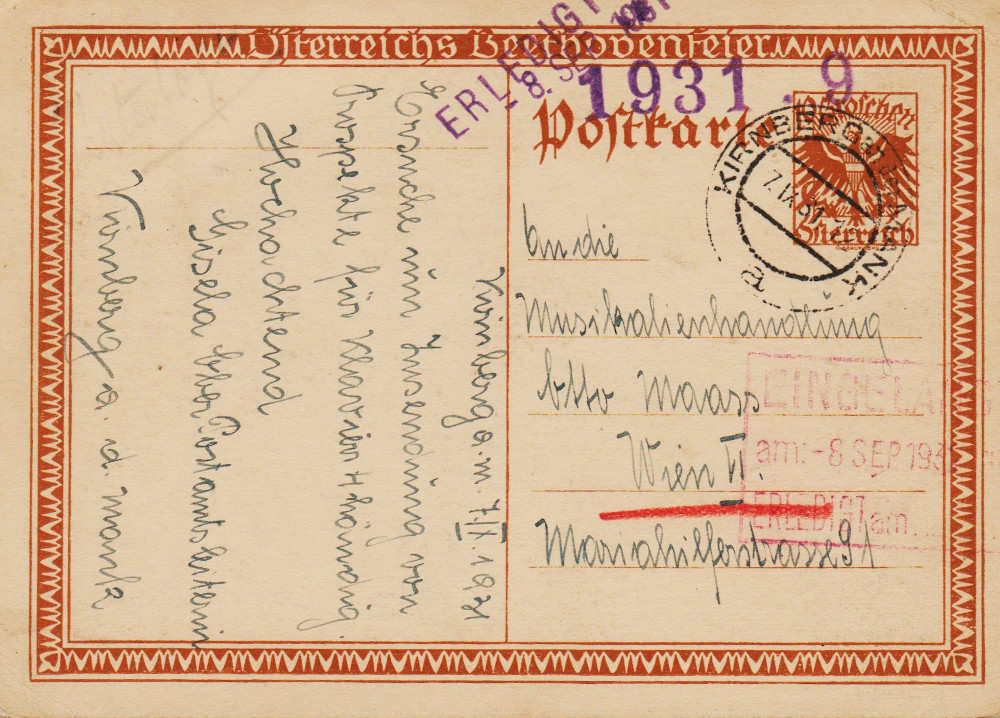 Österreichs Bei Bodenfeier
ERLEDIGT
- 8. SEP. 1931
1931 . 9
Postkarte
Groschen
Österreich
KIRNBERG a/d MANK
7.IX.31
An die
Musikalienhandlung
Otto Maass
Wien VI.
Mariahilferstrasse 91
EINGELANGT
am: -8 SEP 193
ERLEDIGT am
Kirnberg a. m. 7/IX. 1931
Ersuche um Zusendung von
Prospekte für Klavier 4 händig.
Hochachtend
Gisela Eber Postamtsleiterin
Kirnberg a. d. Mank